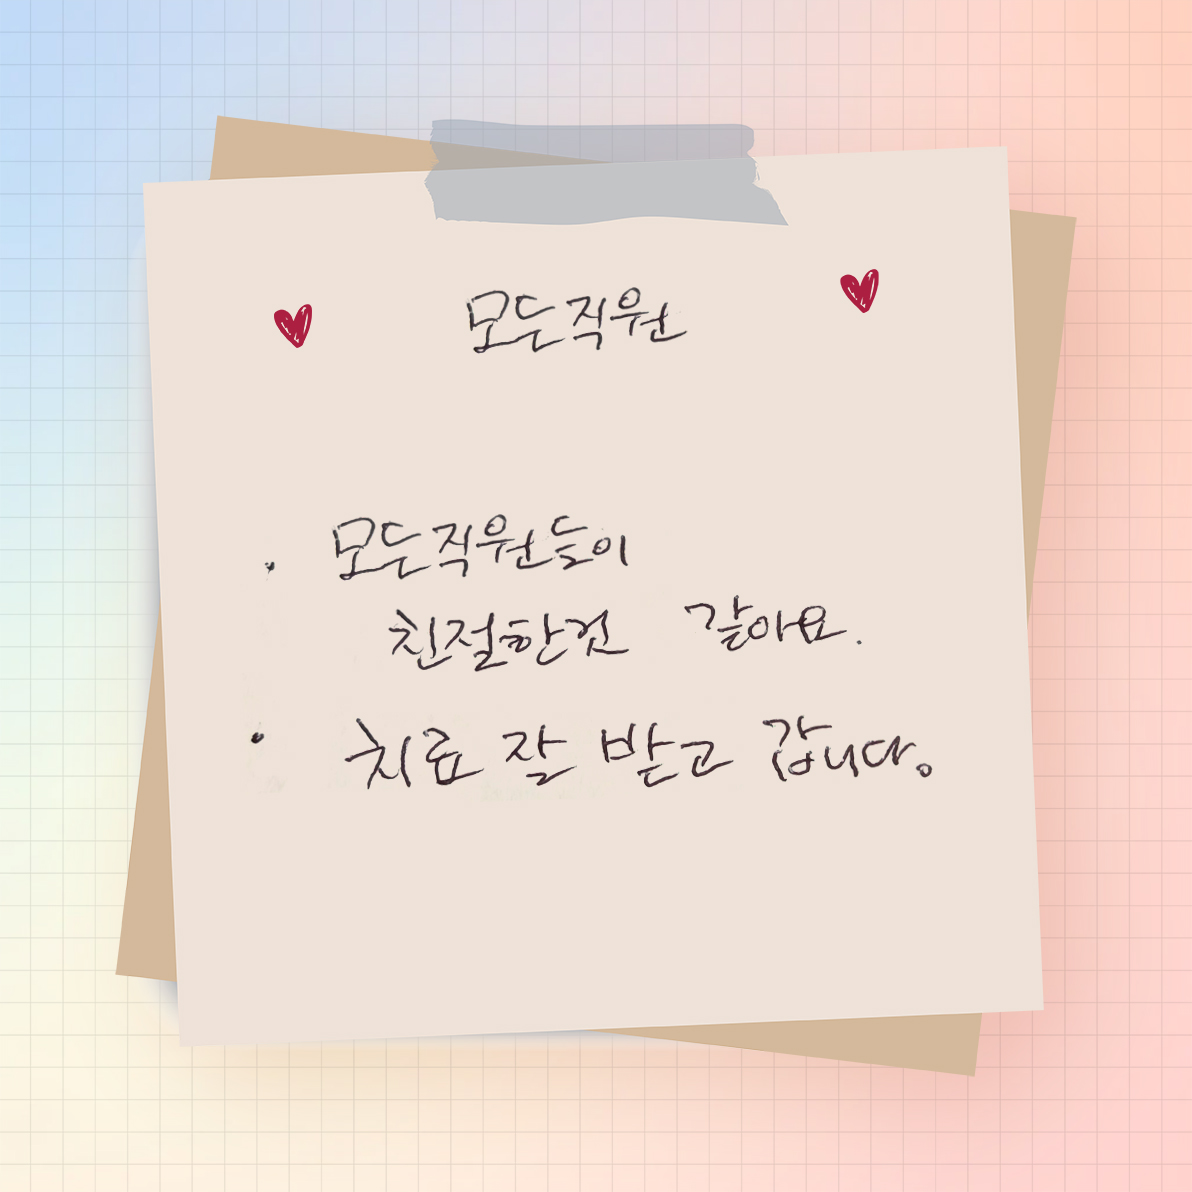 모든직원
. 모든직원들이
친절한것 같아요.
. 치료 잘 받고 갑니다。